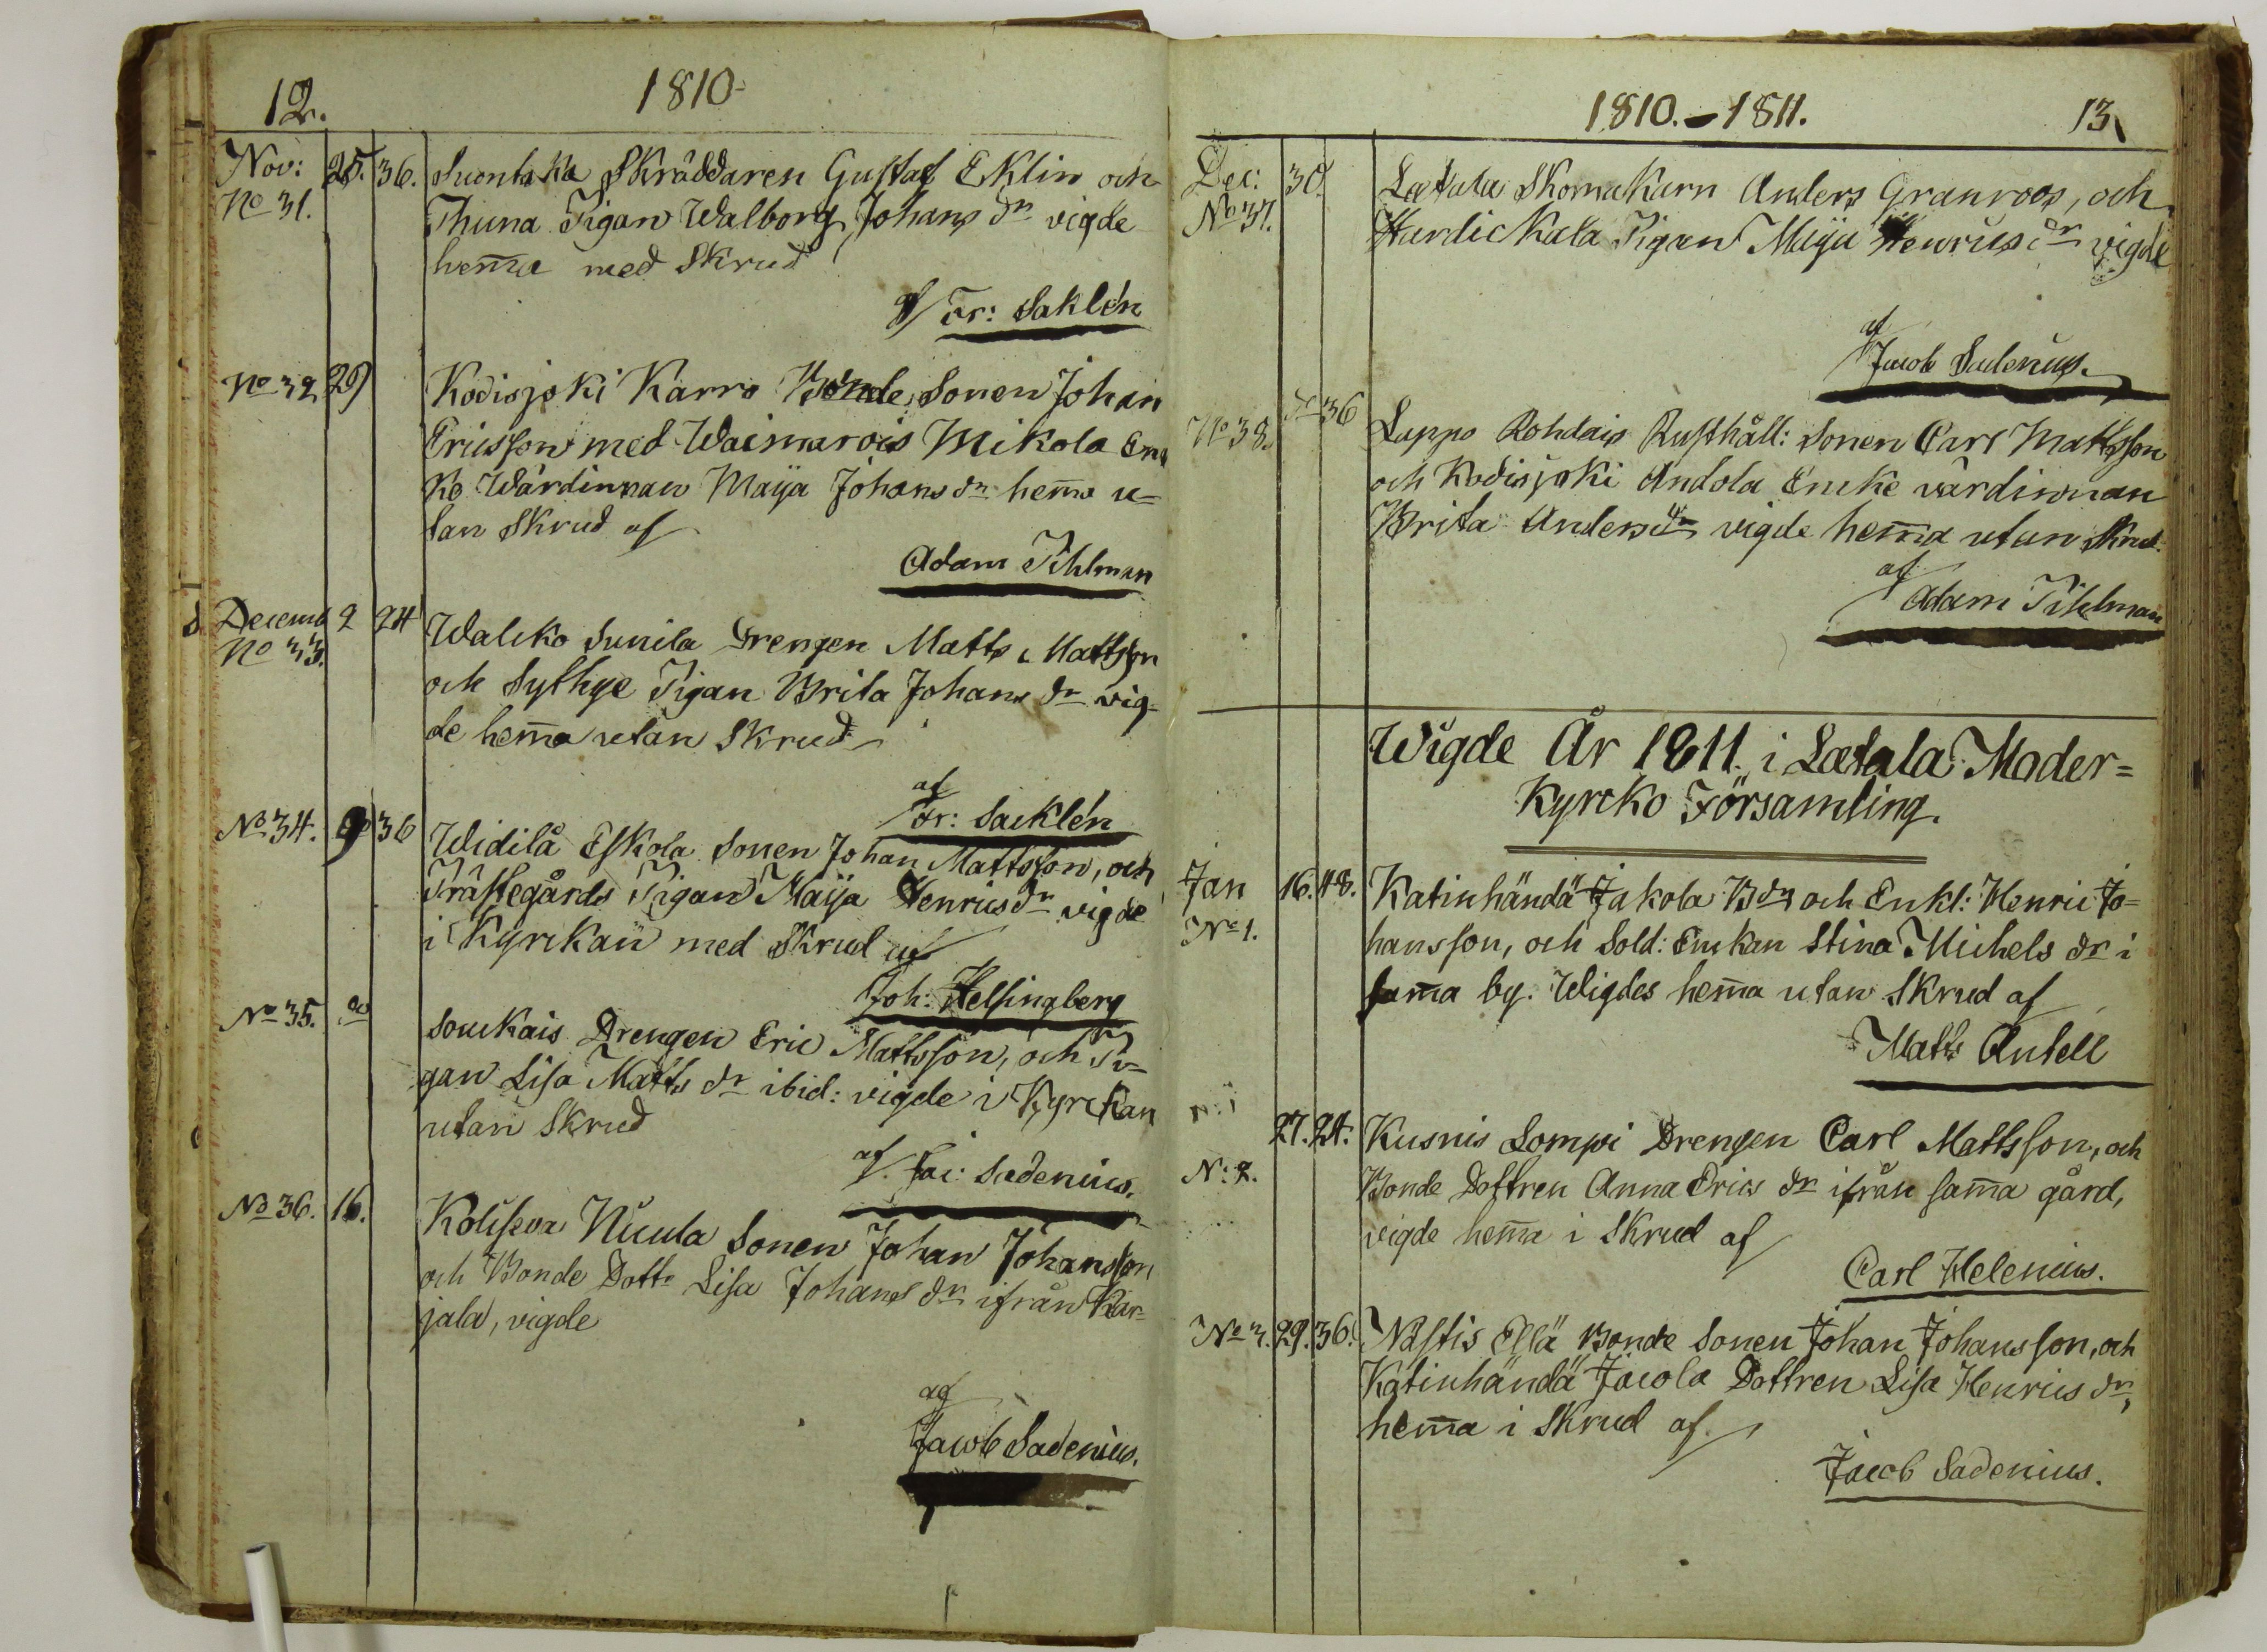 12.
1810
Nov: 25. 36. Suontaka Skräddaren Gustaf Eklin och
No 31. Thuna Pigan Walborg Johans dr vigde
hem̄a med Skrud
af Fr: Saklén
No 32 29 Kodisjoki Karro Bonde Sonen Johan
Ericsson med Waimarois Mikola En
ko Wärdinnan Maija Johans dr hem̄a u=
tan Skrud af
Adam Pihlman
Decemb 2 24 Walcko Sunila Drengen Matts Mattsson
No 33. och Sythye Pigan Brita Johans dr vig=
de hem̄a utan Skrud
af
Fr: Sacklén
No 34. 9 36 Widilä Eskola Sonen Johan Mattsson, och
Prästegårds Pigan Maija Henrics dr vigde
i Kyrckan med Skrud af
Joh: Helsingberg
No 35. do Soukais Drengen Eric Mattsson, och Pi=
gan Lisa Matts dr ibid: vigde i Kyrckan
utan Skrud
af Jac: Sadenius.
No 36. 16. Koliseva Nicula Sonen Johan Johansson
och Bonde Dottr Lisa Johans dr ifrån Kar=
jala, vigde
af
Jacob Sadenius.
1810.-1811. 13
Dec: 30. Letala Skomakarn Anders Granroos, och
No 37. Hardickala Pigan Maija Henrics dr vigde
af
Jacob Sadenius.
No 38. do 36 Lappo Rohdais Rusthåll: Sonen Carl Mattsson
och Kodisjoki Andola Encke värdinnan
Brita Anders dr vigde hem̄a utan Skrud
af
Adam Pihlman
Wigde År 1811. i Letala Moder=
Kyrcko Församling.
Jan 16. 48. Katinhändä Jakola Bdn och Enkl: Henric Jo=
No 1. hansson, och Sold: Enckan Stina Michels dr i
sam̄a by. Wigdes hem̄a utan Skrud af
Matts Antell
27. 24. Kusnis Lompi Drengen Carl Mattsson, och
N: 2. Bonde Dottren Anna Erics dr ifrån sam̄a gård,
vigde hem̄a i Skrud af
Carl Helenius.
No 3. 29. 36. Nästis Ellä Bonde Sonen Johan Johansson, och
Katinhändä Jacola Dottren Lisa Henrics dr,
hem̄a i Skrud af
Jacob Sadenius.